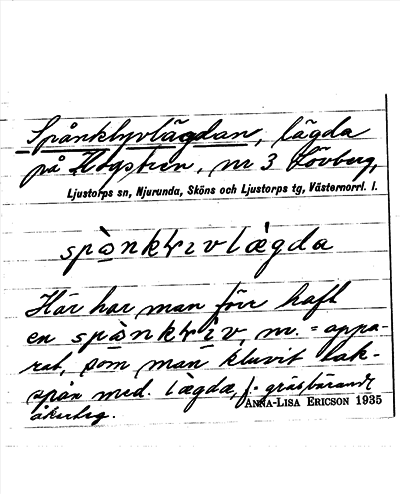 Spånklyvlägdan, lägda
på Hogstien, nr 3 Lövberg,
Ljustorps sn, Njurunda, Sköns och Ljustorps tg, Västernorrl. l.
Här har man förr haft
en m. = appa-
rat, som man kluvit tak-
spån med. lägda, f. gräsbärande
åkerteg.
ANNA-LISA ERICSON 1935